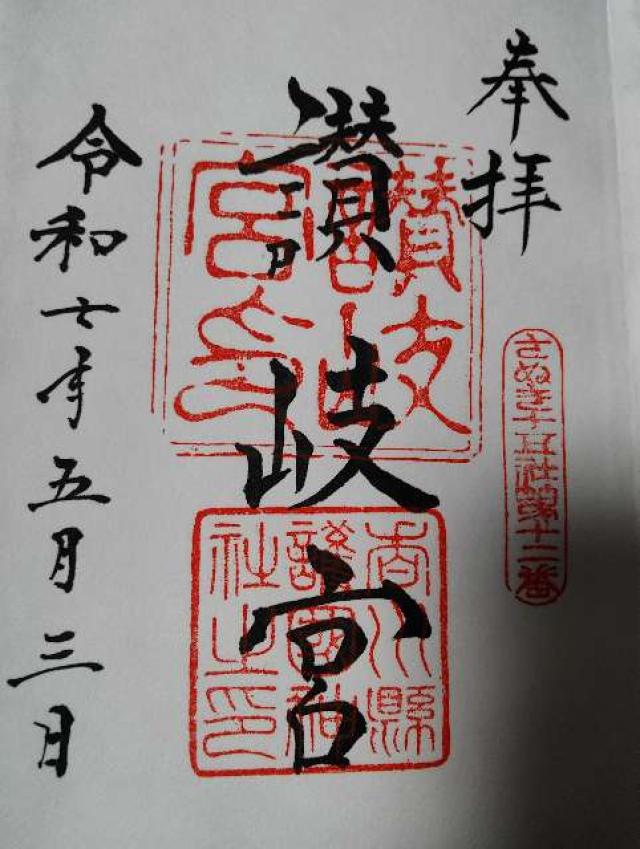 奉拝
さぬき十五社第十二番
讃岐宮
讃岐宮印
香川縣護國神社之印
令和七年五月三日